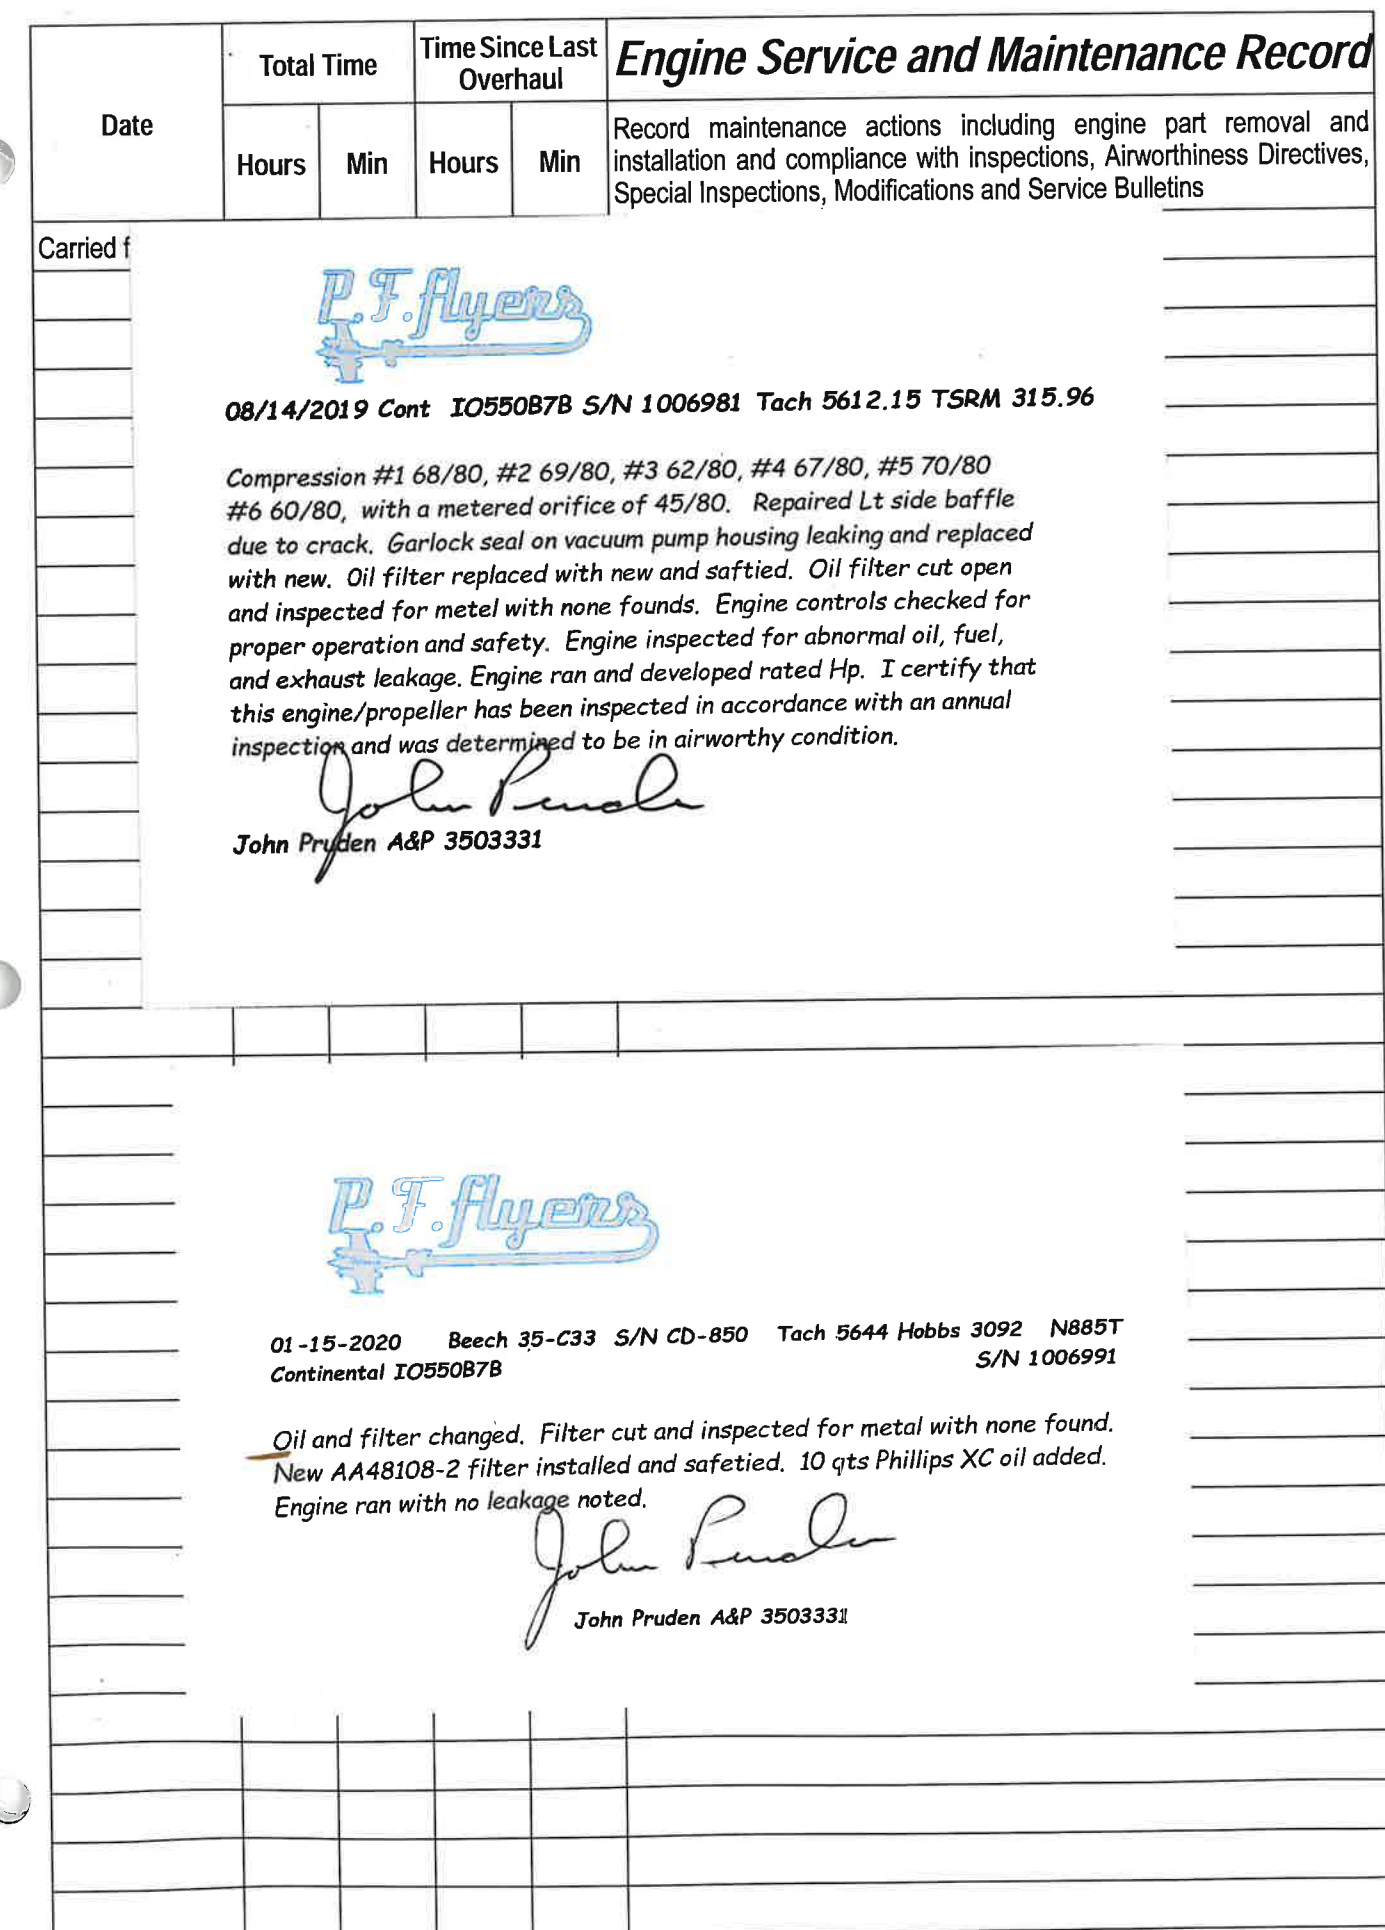 Date
Total Time
Time Since Last
Overhaul
Engine Service and Maintenance Record
Hours
Min
Hours
Min
Record maintenance actions including engine part removal and
installation and compliance with inspections, Airworthiness Directives,
Special Inspections, Modifications and Service Bulletins
Carried f
P.F. flyers
08/14/2019 Cont IO550B7B S/N 1006981 Tach 5612.15 TSRM 315.96
Compression #1 68/80, #2 69/80, #3 62/80, #4 67/80, #5 70/80
#6 60/80, with a metered orifice of 45/80. Repaired Lt side baffle
due to crack. Garlock seal on vacuum pump housing leaking and replaced
with new. Oil filter replaced with new and saftied. Oil filter cut open
and inspected for metel with none founds. Engine controls checked for
proper operation and safety. Engine inspected for abnormal oil, fuel,
and exhaust leakage. Engine ran and developed rated Hp. I certify that
this engine/propeller has been inspected in accordance with an annual
inspection and was determined to be in airworthy condition.
John Pruden
John Pruden A&P 3503331
P.F. flyers
01-15-2020 Beech 35-C33 S/N CD-850 Tach 5644 Hobbs 3092 N885T
Continental IO550B7B S/N 1006991
Oil and filter changed. Filter cut and inspected for metal with none found.
New AA48108-2 filter installed and safetied. 10 qts Phillips XC oil added.
Engine ran with no leakage noted.
John Pruden
John Pruden A&P 3503331